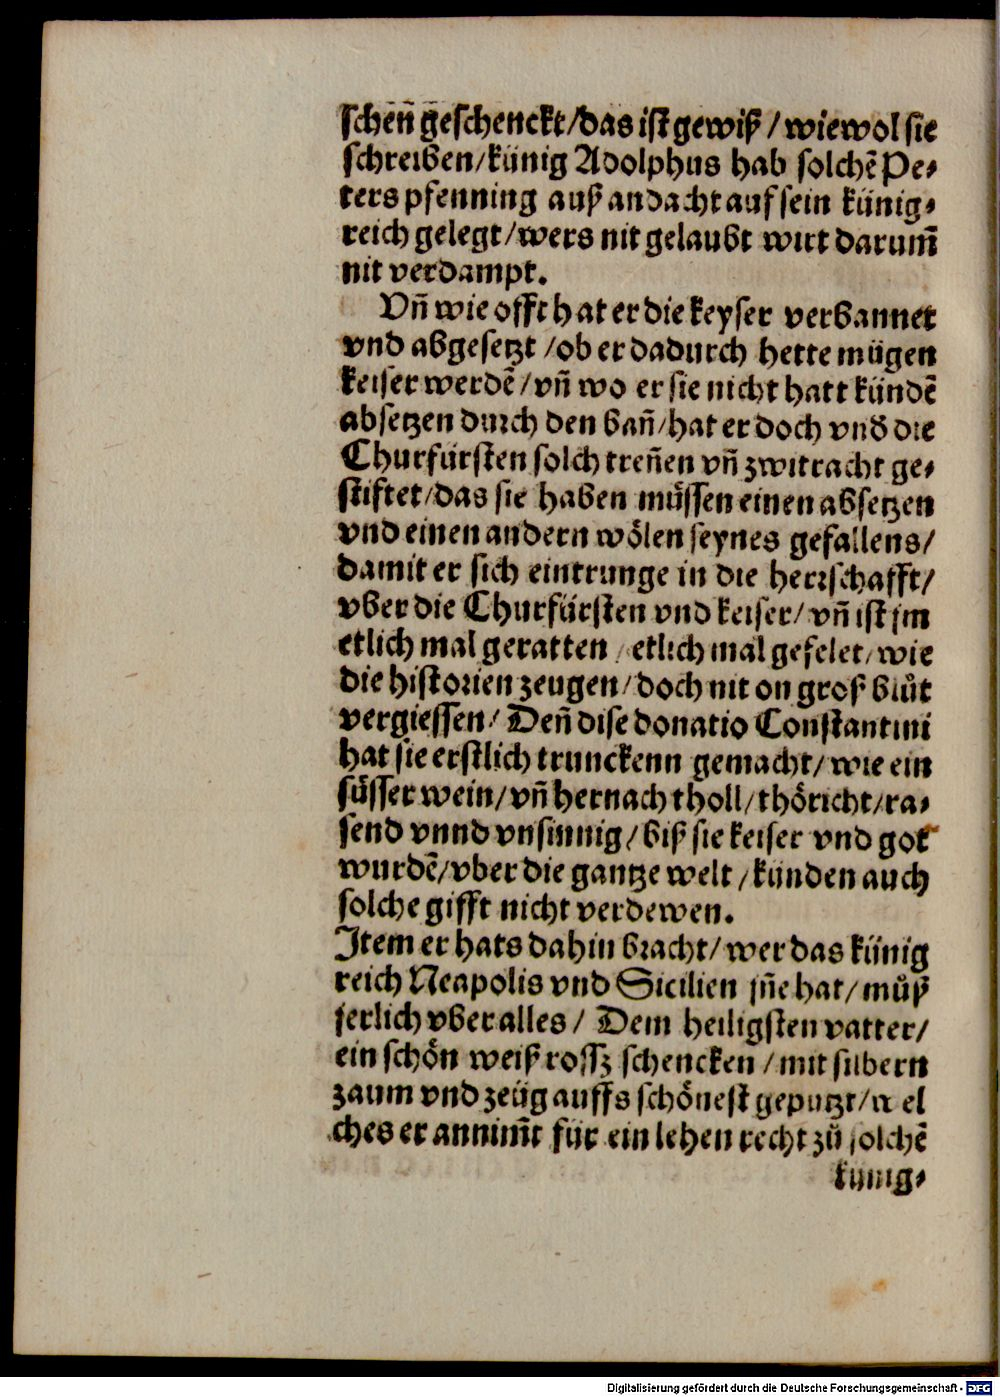 ſchen̄ geſchenckt/das iſt gewiß / wiewol ſie
ſchreiben/künig Adolphus hab ſolchē Pe⸗
ters pfenning auß andacht auf ſein künig⸗
reich gelegt/wers nit gelaubt wirt darum̄
nit verdampt.
Vn̄ wie offt hat er die keyſer verbannet
vnd abgeſetzt /ob er dadurch hette mügen
keiſer werdē/vn̄ wo er ſie nicht hatt kündē
abſetzen durch den ban̄/hat er doch vnd̕ die
Churfürſten ſolch tren̄en vn̄ zwitracht ge⸗
ſtiftet/das ſie haben müſſen einen abſetzen
vnd einen andern wölen ſeynes gefallens/
damit er ſich eintrunge in die herrſchafft/
vber die Churfürſten vnd keiſer/ vn̄ iſt jm
etlich mal geratten / etlich mal gefelet/wie
die hiſtorien zeugen/doch nit on groß blůt
vergieſſen/ Den̄ diſe donatio Conſtantini
hat ſie erſtlich trunckenn gemacht/ wie ein
ſüſſer wein/vn̄ hernach tholl/thöricht/ra⸗
ſend vnnd vnſinnig/biß ſie keiſer vnd got
wurdē/vber die gantze welt /künden auch
ſolche gifft nicht verdewen.
Item er hats dahin bracht/wer das künig
reich Neapolis vnd Sicilien jn̄e hat/můß
jerlich vber alles/ Dem heiligſten vatter/
ein ſchön weiß roſſz ſchencken /mit ſilbern
zaum vnd zeüg auffs ſchöneſt geputzt/wel
ches er annim̄t für ein lehen recht zů ſolchē
künig⸗
Digitalisierung gefördert durch die Deutsche Forschungsgemeinschaft - DFG